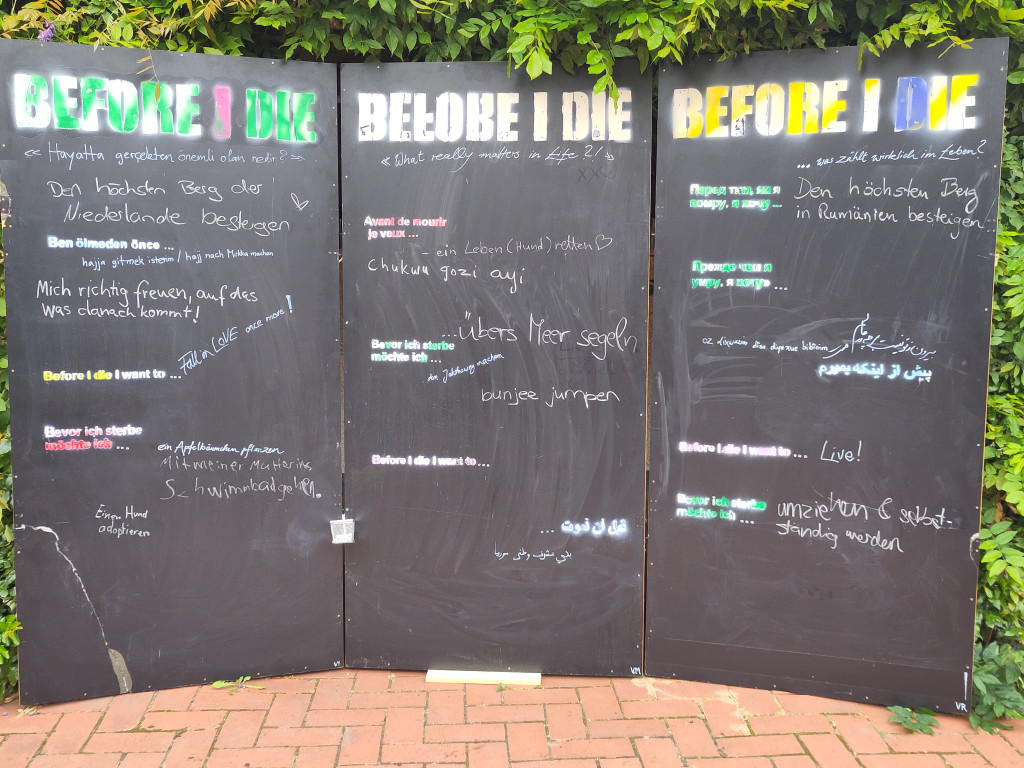 BEFORE I DIE
« Hayatta gerçekten önemli olan nedir? »
Den höchsten Berg der
Niederlande besteigen
Ben ölmeden önce ...
hajja gitmek isterim / hajj nach Mekka machen
Mich richtig freuen, auf das
was danach kommt!
Fall in LOVE once more!
Before I die I want to ...
Bevor ich sterbe
möchte ich ...
ein Apfelbäumchen pflanzen
Mit meiner Mutter ins
Schwimmbad gehen.
Einen Hund
adoptieren
BEFORE I DIE
« What really matters in Life?! »
Avant de mourir
je veux ...
- ein Leben (Hund) retten
Chukwu gozi ayi
... Übers Meer segeln
Bevor ich sterbe
möchte ich ...
den Jakobsweg machen
bunjee jumpen
Before I die I want to ...
قبل ان اموت ...
VM
BEFORE I DIE
... was zählt wirklich im Leben?
Перед тим, як я
помру, я хочу ...
Den höchsten Berg
in Rumänien besteigen
Прежде чем я
умру, я хочу ...
پیش از اینکه بمیرم
Before I die I want to ...
Live!
Bevor ich sterbe
möchte ich ...
umziehen & selbst-
ständig werden
VR